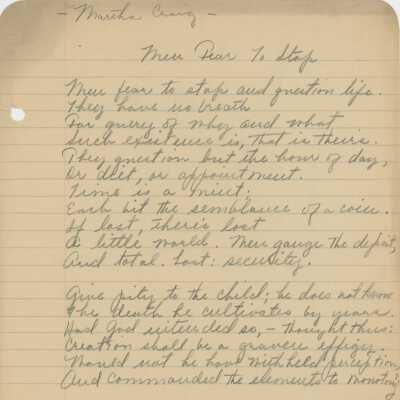 - Martha Craig -
Men Fear To Stop
Men fear to stop and question life.
They have no breath
For query of why and what
Such existence is, that is theirs.
They question but the hour of day,
Or diet, or appointment.
Time is a mint:
Each bit the semblance of a coin.
If lost, there's lost
A little world. Men gauge the deficit,
And total. Lost: security.
Give pity to the child; he does not know
The death he cultivates by years.
Had God intended so, - thought thus:
Creation shall be a graven effigy,
Would not he have withheld perception,
And commanded the elements to monotony